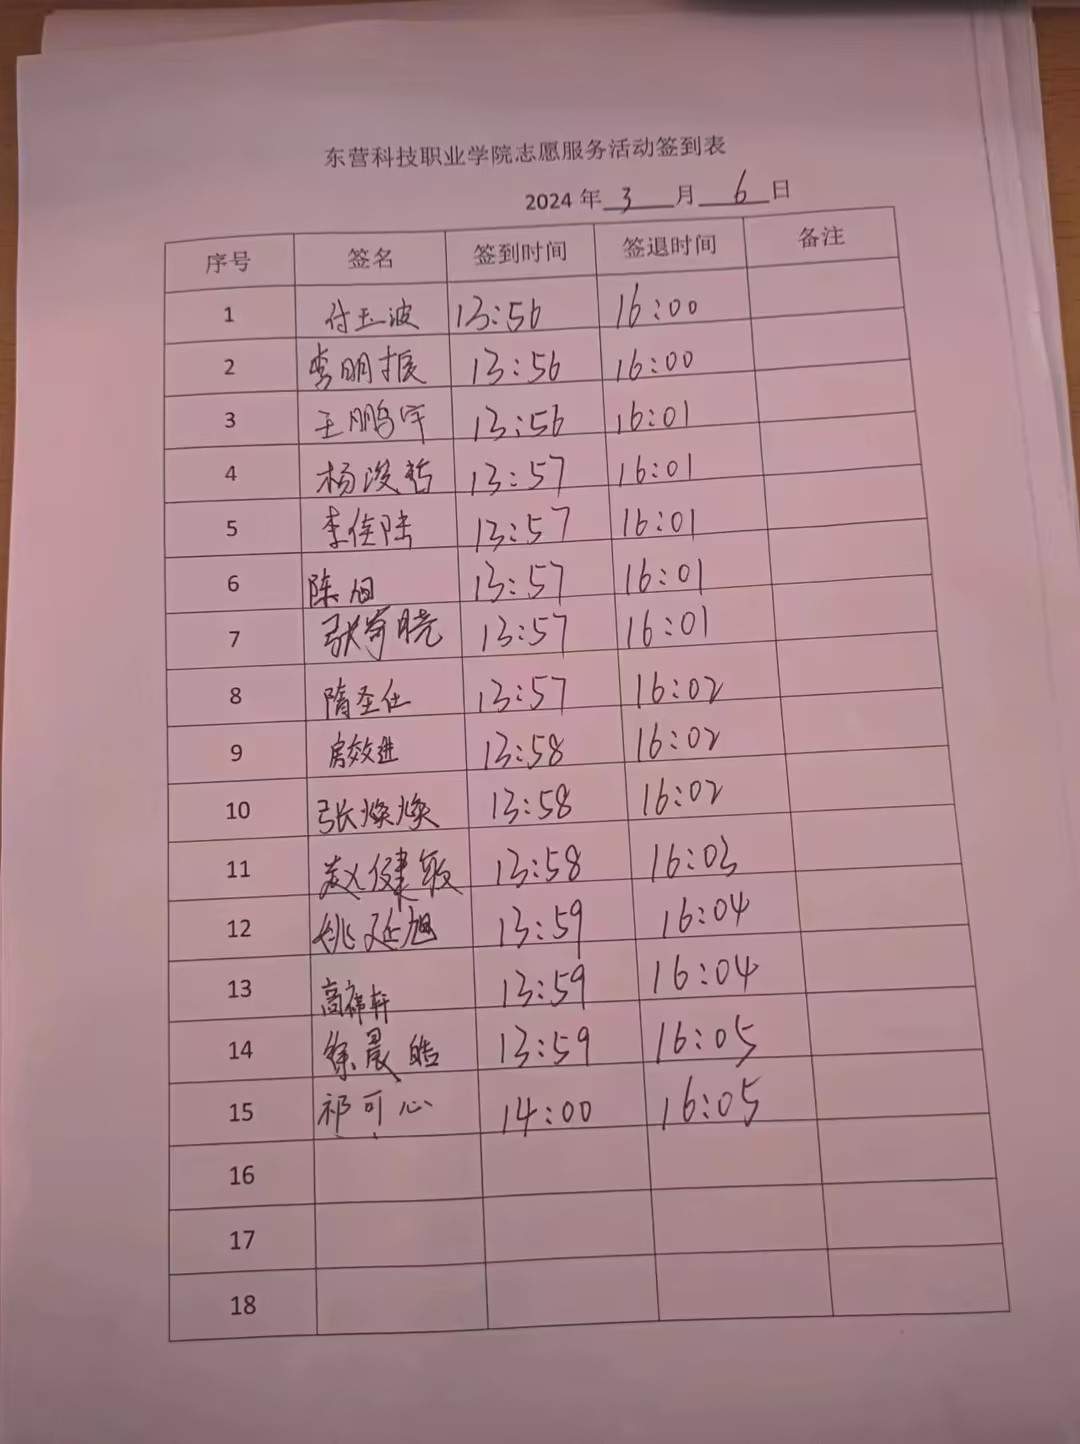 东营科技职业学院志愿服务活动签到表
2024 年 3 月 6 日
序号 签名 签到时间 签退时间 备注
1 付玉波 13:56 16:00
2 李明振 13:56 16:00
3 王鹏宇 13:56 16:01
4 杨浚哲 13:57 16:01
5 李佳陆 13:57 16:01
6 陈旭 13:57 16:01
7 张 晓 13:57 16:01
8 隋圣仕 13:57 16:02
9 房效进 13:58 16:02
10 张焕焕 13:58 16:02
11 赵健毅 13:58 16:03
12 姚延旭 13:59 16:04
13 高祎轩 13:59 16:04
14 徐晨皓 13:59 16:05
15 祁可心 14:00 16:05
16
17
18